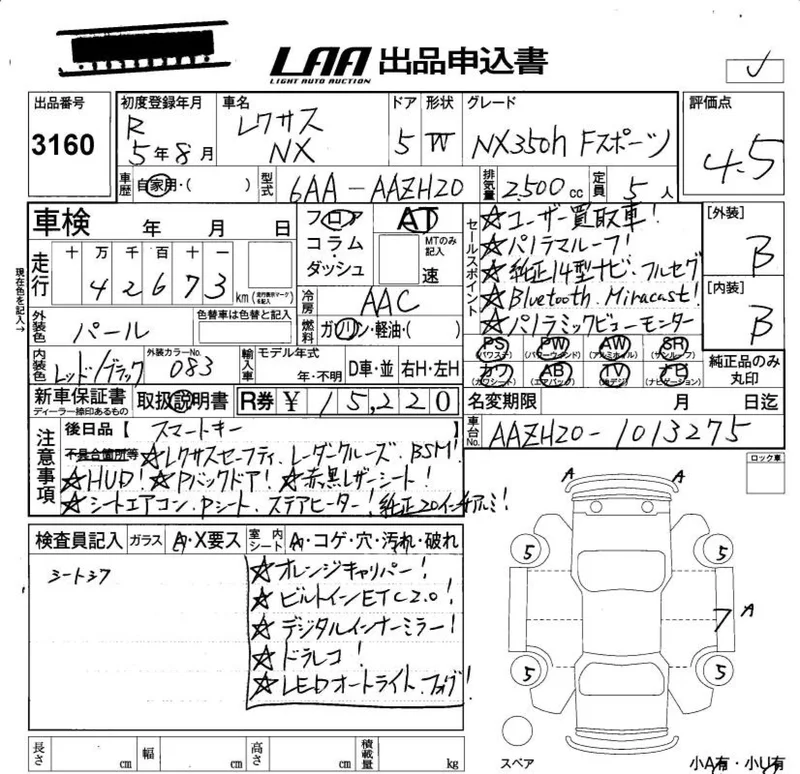 LAA 出品申込書
LIGHT AUTO AUCTION
出品番号
3160
初度登録年月
R
5年8月
車名
レクサス
NX
ドア
5
形状
W
グレード
NX350h Fスポーツ
評価点
4.5
車歴
自家用・( )
型式
6AA-AAZH20
排気量
2,500 cc
定員
5人
車検 年 月 日
フロア
コラム・
ダッシュ
AT
MTのみ記入
速
セールスポイント
☆ユーザー買取車!
☆パノラマルーフ!
☆純正14型ナビ・フルセグ
☆Bluetooth.Miracast!
☆パノラミックビューモニター
[外装]
B
[内装]
B
現在色を記入→
走行
十 万 千 百 十 一
4 2 6 7 3
km (走行表示マークを記入)
冷房
AAC
燃料
ガソリン・軽油・( )
外装色
パール
色替車は色替と記入
内装色
レッド/ブラック
外装カラーNo.
083
輸入車
モデル年式
年・不明
D車・並
右H・左H
PS
(パワステ)
PW
(パワーウィンド)
AW
(アルミホイル)
SR
(サンルーフ)
カワ
(カワシート)
AB
(エアバック)
TV
(地デジ)
ナビ
(ナビゲーション)
純正品のみ
丸印
新車保証書
ディーラー捺印あるもの
取扱説明書
R券 ¥ 15,220
名変期限 月 日迄
注意事項
後日品【 スマートキー
不具合箇所等
☆レクサスセーフティ.レーダークルーズ.BSM!
☆HUD!☆Pバックドア!☆赤黒レザーシート!
☆シートエアコン.Pシート.ステアヒーター!純正20インチアルミ!
車台No.
AAZH20-1013275
ロック車
検査員記入
ガラス
A・X要ス
室内シート
A・コゲ・穴・汚れ・破れ
☆オレンジキャリパー!
☆ビルトインETC2.0!
☆デジタルインナーミラー!
☆ドラレコ!
☆LEDオートライト.フォグ!
A
A
5
5
7
A
5
5
スペア
小A有・小U有
長さ cm
幅 cm
高さ cm
積載量 kg